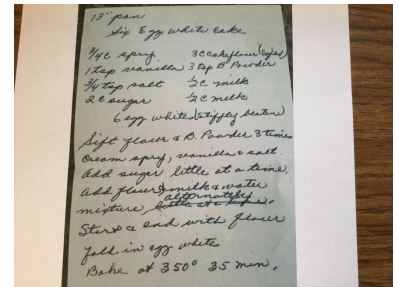 13" pan
Six Egg white cake
3/4 c spry 3 c cakeflour (sifted)
1 tsp vanilla 3 tsp B Powder
3/4 tsp salt 1/2 c milk
2 c sugar 1/2 c melk
6 egg white (stiffly beaten)
Sift flour & B. Powder 3 times
Cream spry, vanilla & salt.
Add sugar little at a time.
Add flour & milk & water
mixture alternately little at a time.
Start & end with flour
Fold in egg white
Bake at 350° 35 min.